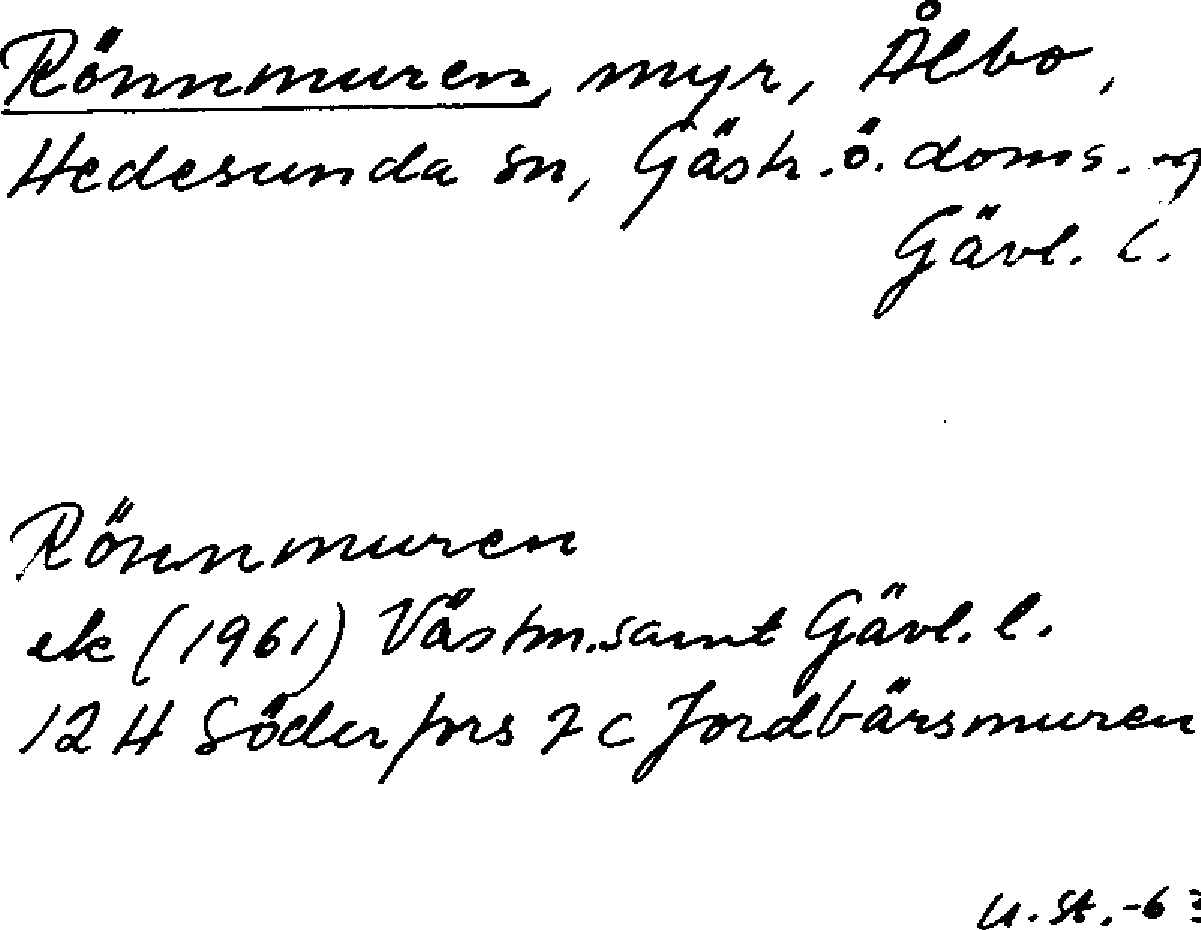 Rönnmuren, myr, Ålbo,
Hedesunda sn, Gästr. ö. doms. -g
Gävl. l.
Rönnmuren
ek (1961) Västm. samt Gävl. l.
12 H Söderfors 7 c Jordbärsmuren
U. St. -63